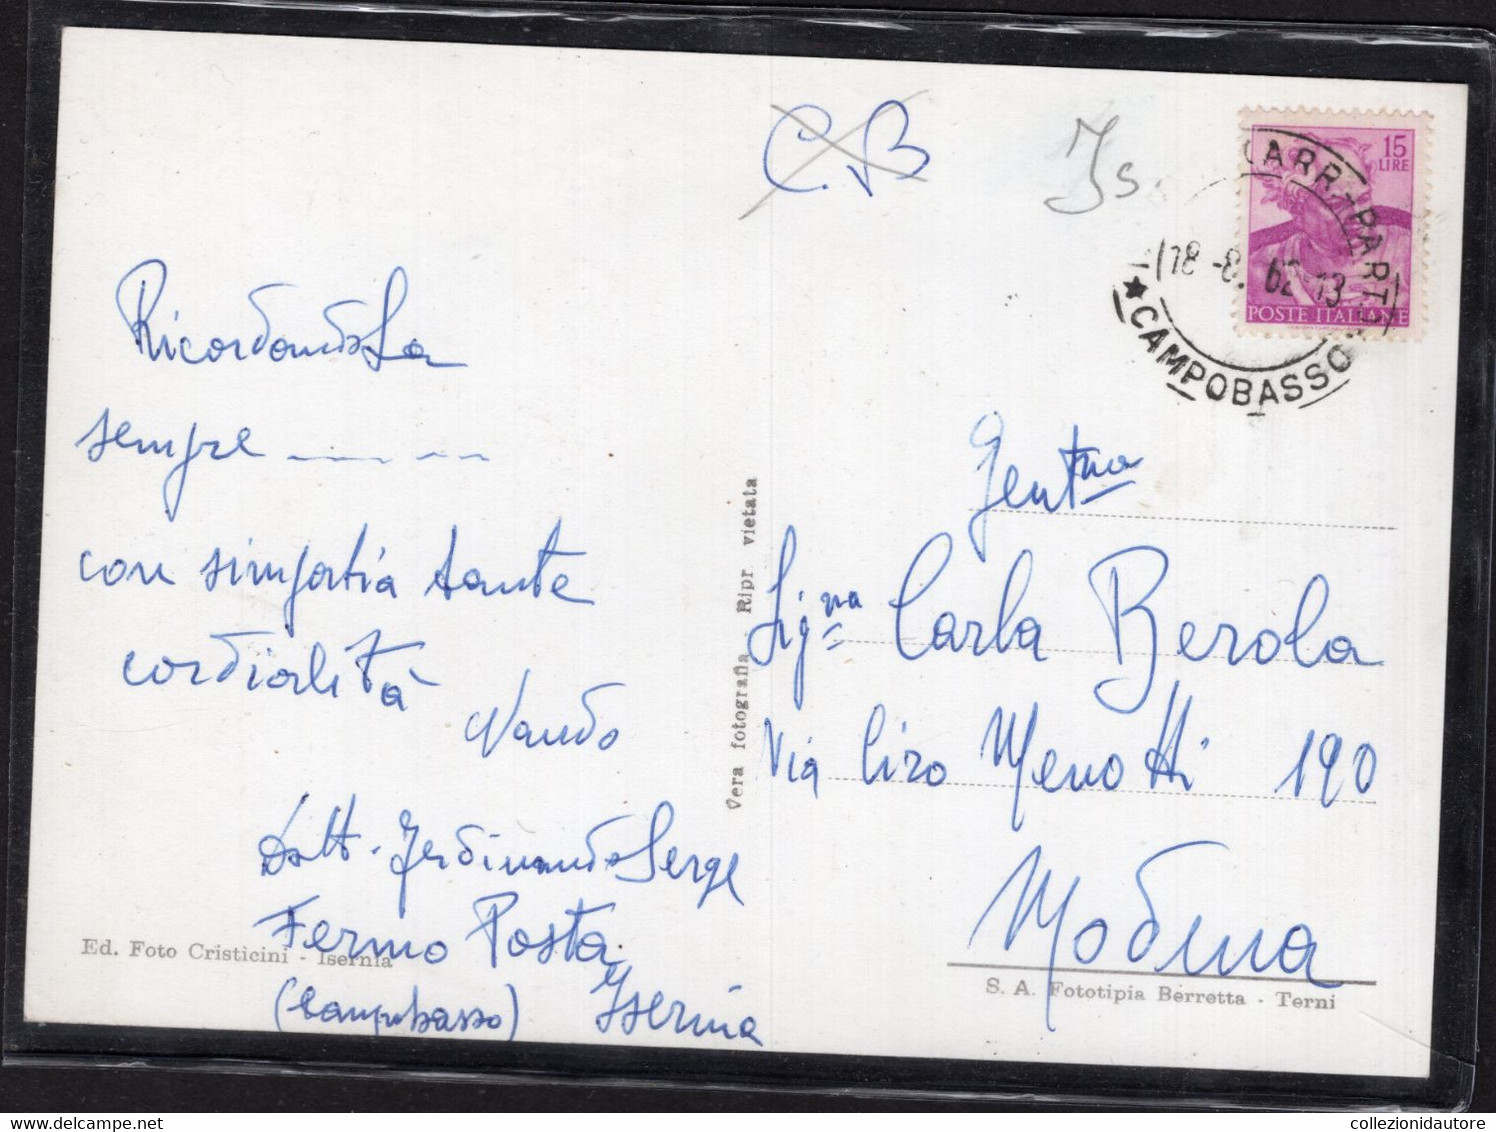 C. B
Is
15
LIRE
POSTE ITALIANE
CARR. PART
18 -8. 62 - 13
★ CAMPOBASSO
RicordandoLa
sempre
con simpatia tante
cordialità
Nando
Dott. Ferdinando Serge
Fermo Posta
(Campobasso) Isernia
Ed. Foto Cristicini - Isernia
Vera fotografia Ripr vietata
Gent.ma
Sig.na Carla Berola
Via Ciro Menotti 190
Modena
S. A. Fototipia Berretta - Terni
© collezionidautore